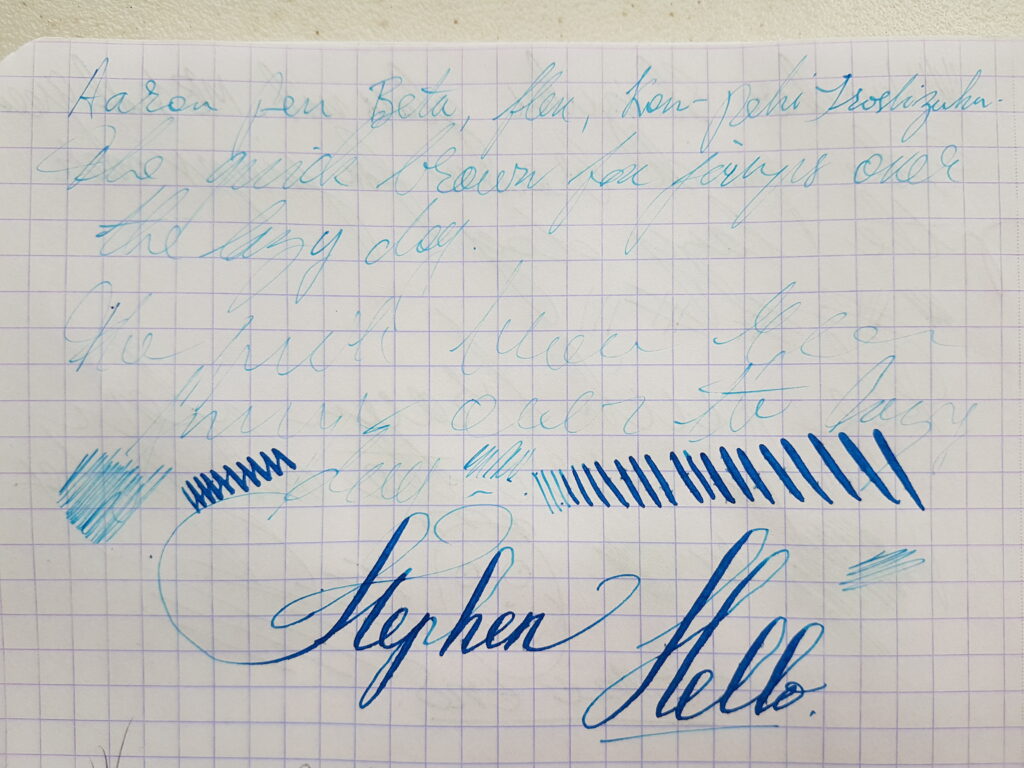 Aaron pen Beta, flex, Kon-peki Iroshizuku.
the quick brown fox jumps over
the lazy dog.
the quick
over the lazy
Stephen
Hello.